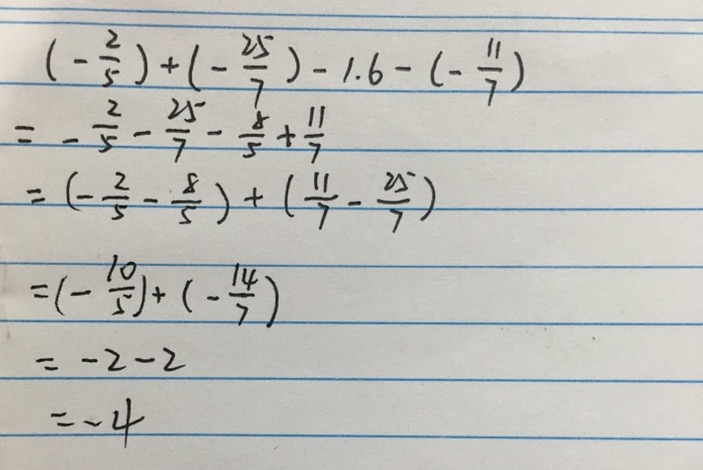 (-2/5)+(-25/7)-1.6-(-11/7)
= -2/5-25/7-8/5+11/7
=(-2/5-8/5)+(11/7-25/7)
=(-10/5)+(-14/7)
= -2-2
=-4